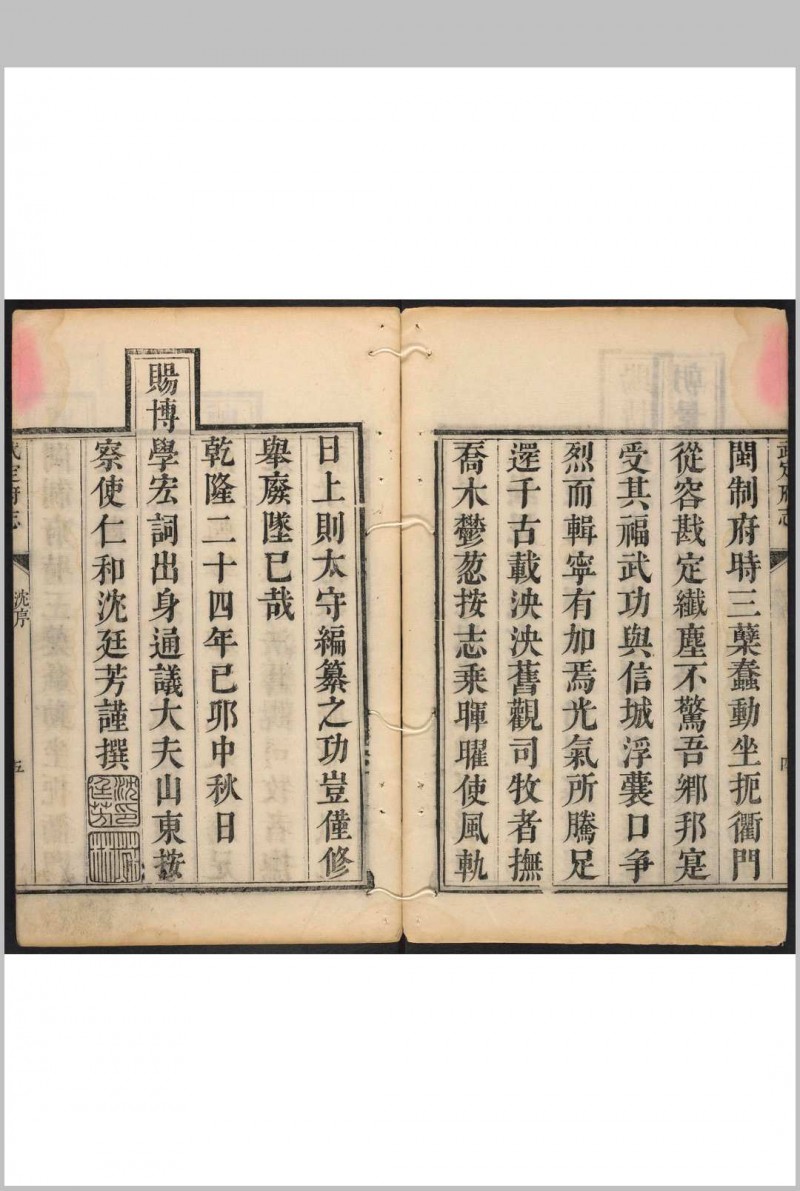 武定府志
閩制府時三蘖蠢動坐扼衢門
從容戡定纖塵不驚吾鄉邦寔
受其福武功與信城浮囊口争
烈而輯寧有加焉光氣所騰足
還千古載泱泱舊觀司牧者撫
喬木鬱葱按志乘暉曜使風軌
日上則太守編纂之功豈僅修
舉廢墜已哉
乾隆二十四年己卯中秋日
賜博學宏詞出身通議大夫山東按
察使仁和沈廷芳謹撰
武定府志
沈序
五